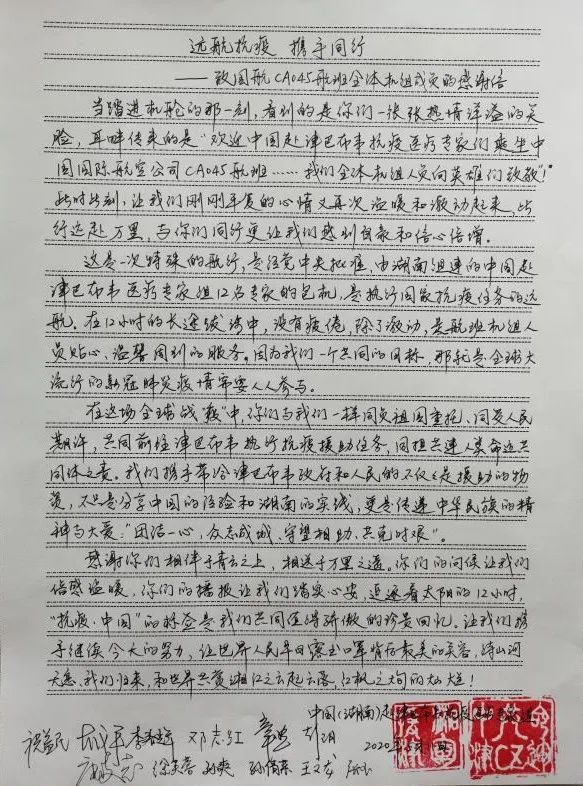 远航抗疫 携手同行
——致国航CA045航班全体机组成员的感谢信
当踏进机舱的那一刻，看到的是你们一张张热情洋溢的笑
脸，耳畔传来的是“欢迎中国赴津巴布韦抗疫医疗专家们乘坐中
国国际航空公司CA045航班……我们全体机组人员向英雄们致敬！”
此时此刻，让我们刚刚平复的心情又再次温暖和激动起来，此
行远赴万里，与你们同行更让我们感到自豪和信心倍增。
这是一次特殊的航行，是经党中央批准，由湖南组建的中国赴
津巴布韦医疗专家组12名专家的包机，是执行国家抗疫任务的远
航。在12小时的长途旅途中，没有疲倦，除了激动，是航班机组人
员贴心、温馨周到的服务。因为我们一个共同的目标，那就是全球大
流行的新冠肺炎疫情需要人人参与。
在这场全球战“疫”中，你们与我们一样同负祖国重托、同受人民
期许，共同前往津巴布韦执行抗疫援助任务，同担共建人类命运共
同体之责。我们携手带给津巴布韦政府和人民的不仅仅是援助的物
资，不只是分享中国的经验和湖南的实践，更是传递中华民族的精
神与大爱：“团结一心，众志成城，守望相助，共克时艰”。
感谢你们相伴于青云之上，相送于万里之遥。你们的问候让我们
倍感温暖，你们的播报让我们踏实心安，追逐着太阳的12小时，
“抗疫·中国”的标签是我们共同值得骄傲的珍贵回忆。让我们携
手继续今天的努力，让世界人民早日露出口罩背后最美的笑容，待山河
无恙，我们归来，和世界共赏湘江之云起云落，江枫之间的灿烂！
中国（湖南）赴津巴布韦抗疫
2020年5月11日
祝益民 李君 邓志红 章迪 胡玥
徐芙蓉 孙爽 孙倩来 王文龙